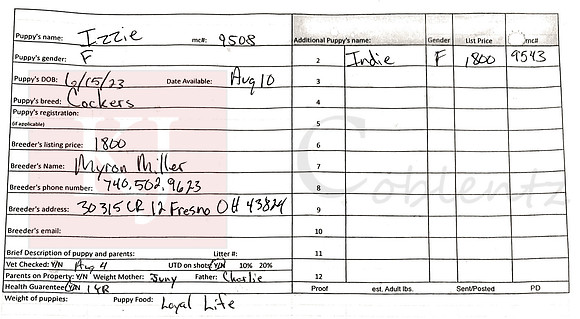 Puppy's name: Izzie mc#: 9508
Additional Puppy's name: Gender List Price mc#:
Puppy's gender: F
2 Indie F 1800 9543
Puppy's DOB: 6/15/23 Date Available: Aug 10
3
Puppy's breed: Cockers
4
Puppy's registration:
(if applicable)
5
Breeder's listing price: 1800
6
Breeder's Name: Myron Miller
7
Breeder's phone number: 740.502.9623
8
Breeder's address: 30315 CR 12 Fresno OH 43824
9
Breeder's email:
10
Brief Description of puppy and parents: Litter #:
11
Vet Checked: Y/N Aug 4 UTD on shots Y/N 10% 20%
Parents on Property: Y/N Weight Mother: Juny Father: Charlie
12
Health Guarentee Y/N 1 YR
Proof est. Adult lbs. Sent/Posted PD
Weight of puppies: Puppy Food: Loyal Life
KJ Coblentz